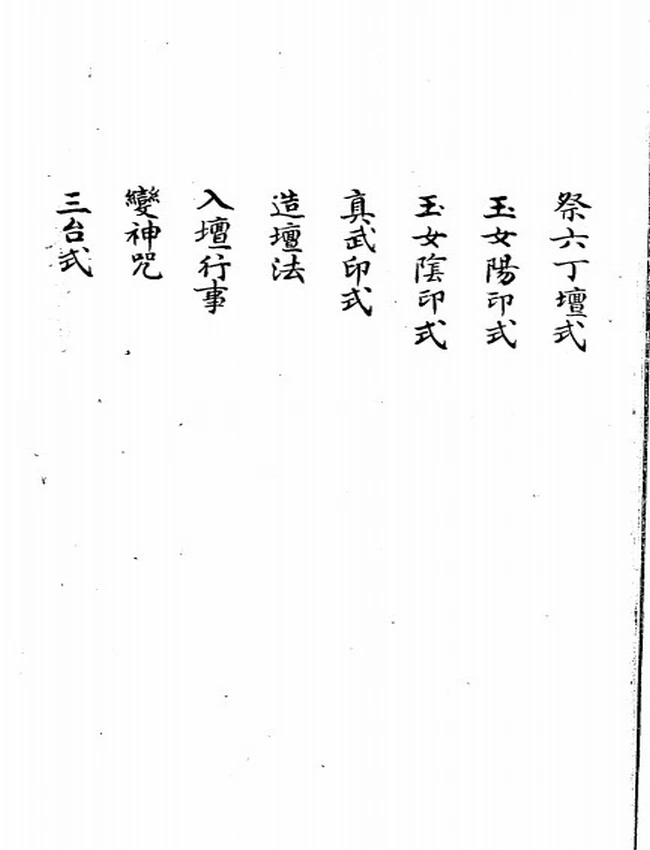 祭六丁壇式
玉女陽印式
玉女陰印式
真武印式
造壇法
入壇行事
變神咒
三台式